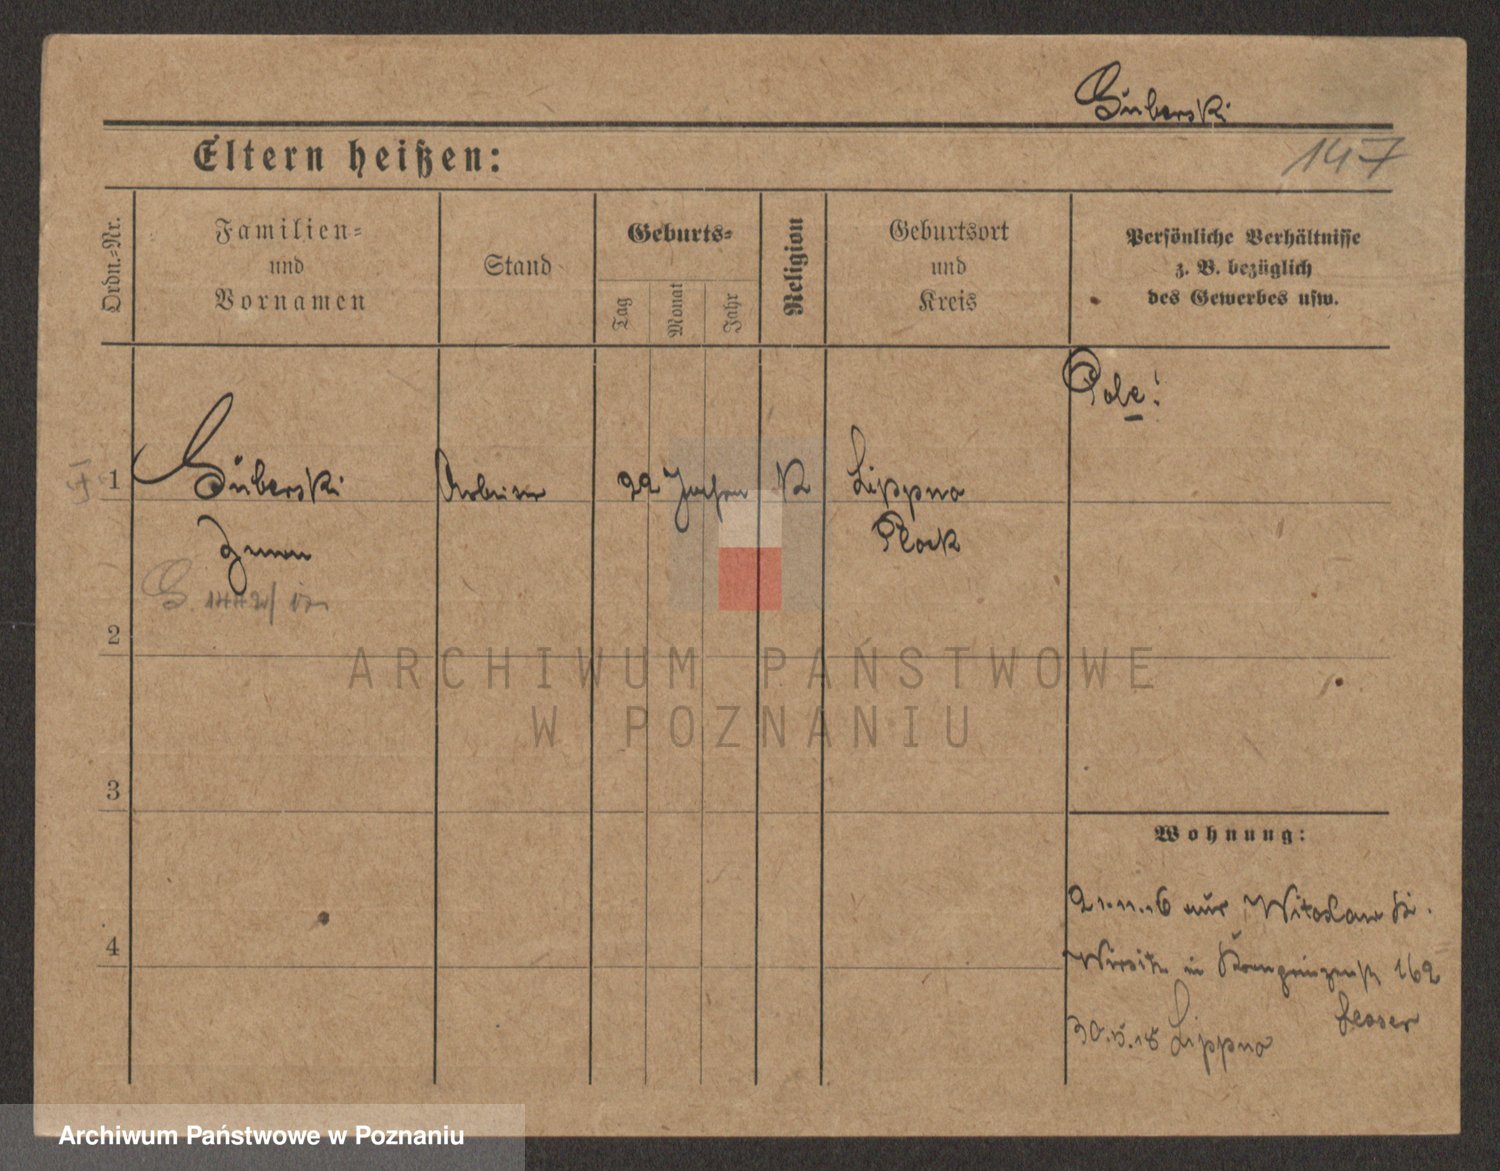 Guberski
Eltern heißen:
147
Ordn.-Nr.
Familien-
und
Vornamen
Stand
Geburts-
Tag
Monat
Jahr
Religion
Geburtsort
und
Kreis
Persönliche Verhältnisse
z. B. bezüglich
des Gewerbes usw.
Pole!
1
Guberski
Arbeiter
22 Jahre
K
Lippno
Plock
2
ARCHIWUM PAŃSTWOWE
W POZNANIU
3
Wohnung:
21.11.16 aus Witoslaw Kr.
4
Wirsitz in Kronprinzenstr 162
Lesser
30.5.18 Lippno
Archiwum Państwowe w Poznaniu